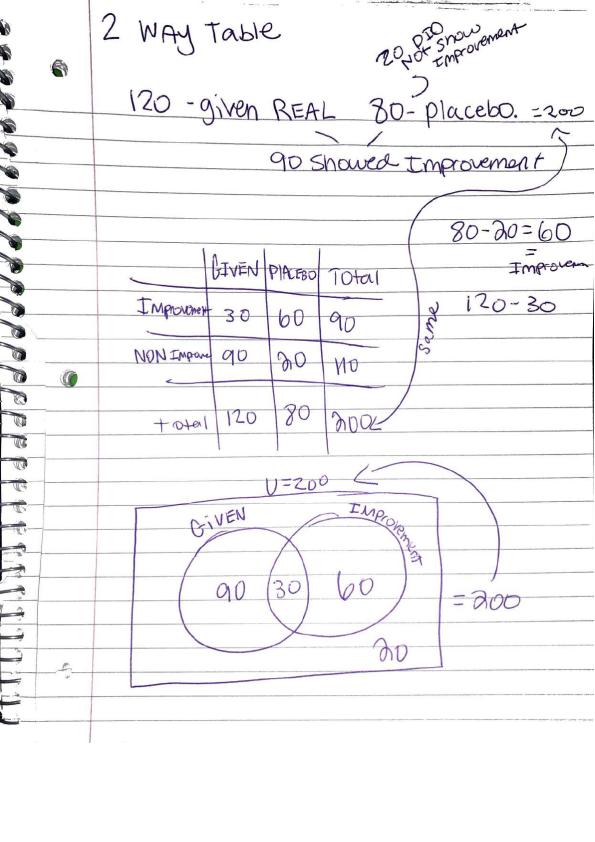 2 WAY Table
20 DID
Not Show
Improvement
120 - given REAL 80 - placebo. = 200
90 Showed Improvement
80-20 = 60
=
Improvem
120-30
GIVEN PLACEBO TOtal
Improvement 30 60 90
NON Improve 90 20 110
total 120 80 200
Same
U=200
GIVEN Improvement
90 30 60 = 200
20